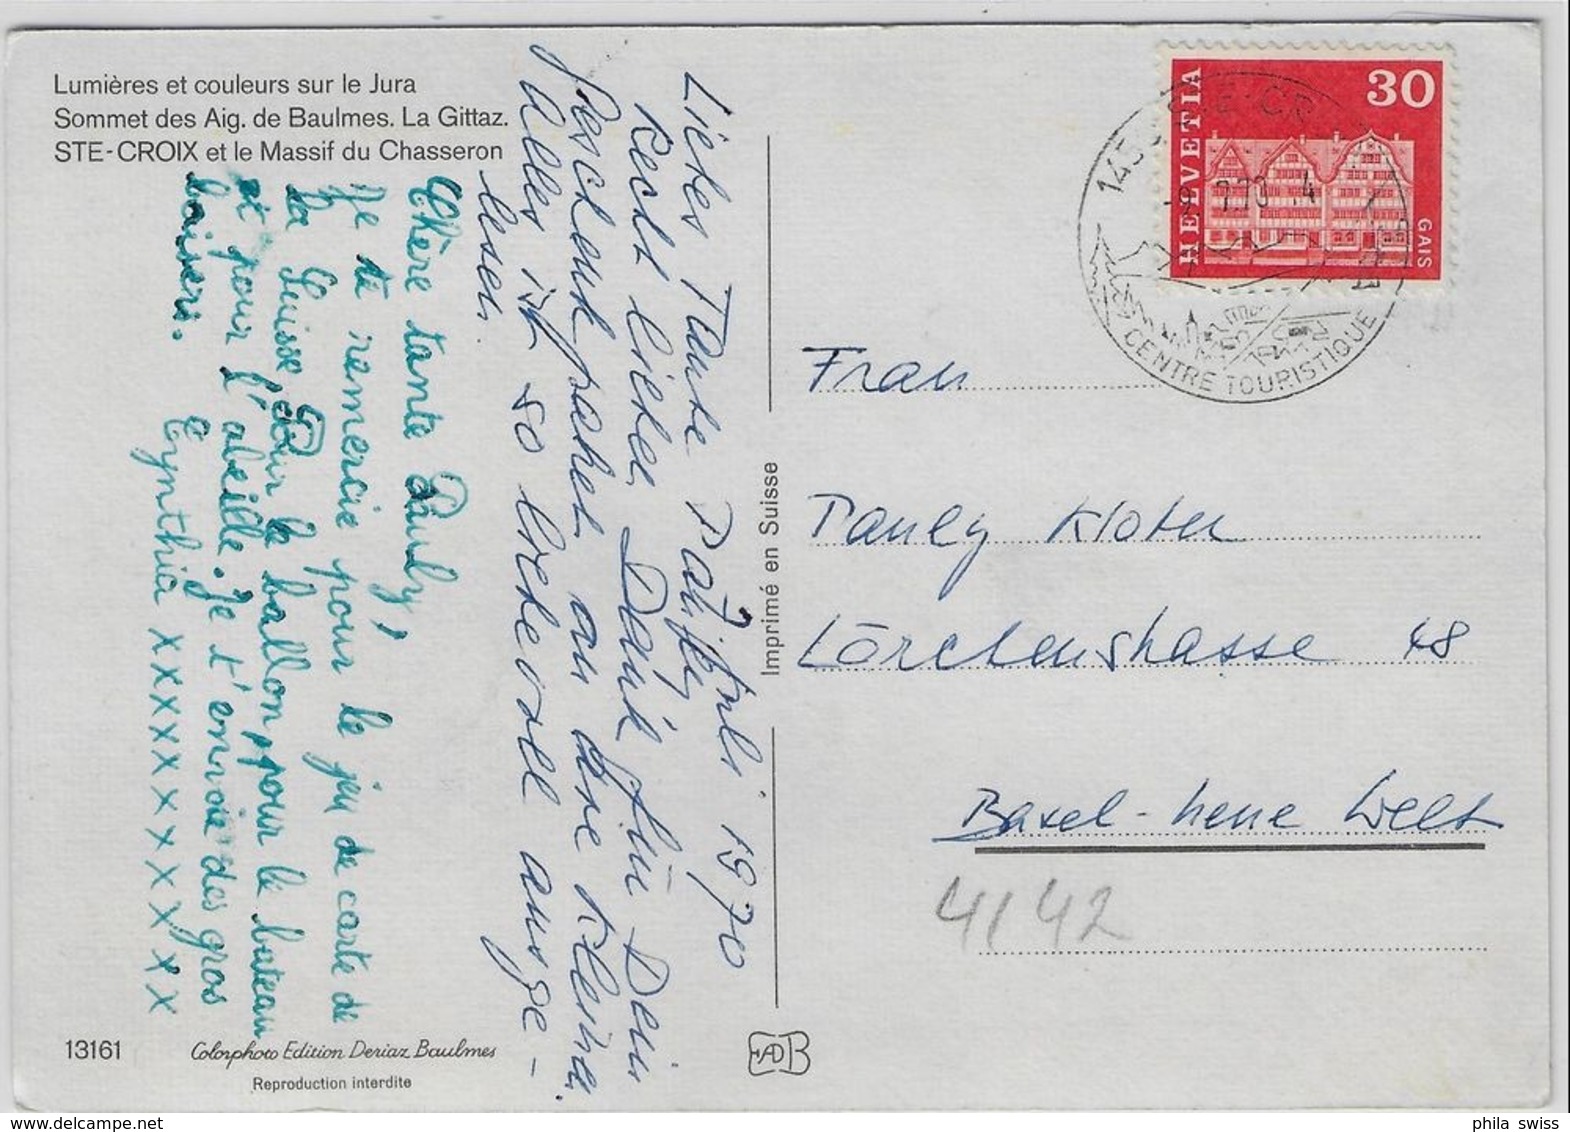 Lumières et couleurs sur le Jura
Sommet des Aig. de Baulmes. La Gittaz.
STE-CROIX et le Massif du Chasseron
Juli 1970
Liebes Tante Pauly
Recht lieben Dank für Dein
Geschenkpacket an die Kleine.
Alles ist so liebevoll ausge-
lesen.
Chère tante Pauly,
Je te remercie pour le jeu de carte de
la Suisse pour le ballon pour le bateau
et pour l'abeille. Je t'envoie des gros
baisers.
Cynthia x x x x x x x x x x
13161
Colorphoto Edition Deriaz Baulmes
Reproduction interdite
Imprimé en Suisse
EADB
HELVETIA
30
GAIS
1450 STE-CR
-9. 7.70
CENTRE TOURISTIQUE
Frau
Pauly Kloter
Lörchenstrasse 48
Basel-neue Welt
4142
phila swiss